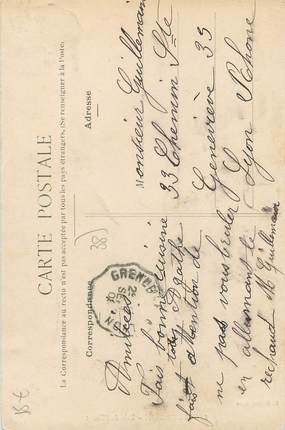 CARTE POSTALE
La Correspondance au recto n'est pas acceptée par tous les pays étrangers. (Se renseigner à la Poste).
Correspondance
Adresse
Monsieur Guillemain
33 Chemin Ste
Geneviève 33
Lyon Rhône
Amitiés
Fais bonne cuisine
Agathe
fais attention de
ne pas vous brûler
en allumant le
réchaud M Guillemain
GRENOBLE
38